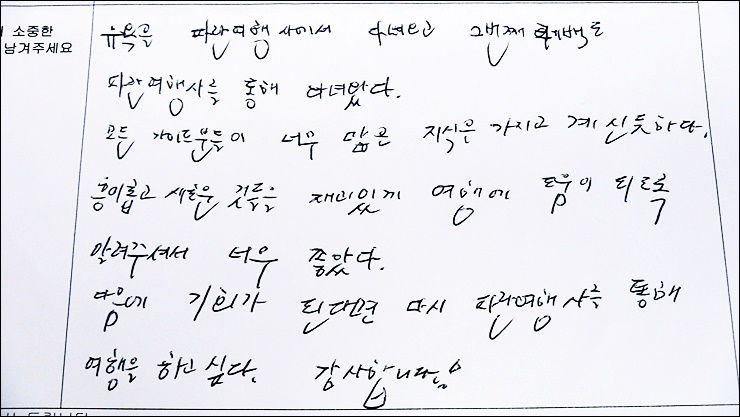 소중한
남겨주세요
유럽을 파란여행사에서 다녀오고 2번째 퀘백도
파란여행사를 통해 다녀왔다.
모든 가이드분들이 너무 많은 지식을 가지고 계신듯하다.
흥미롭고 새로운 것들을 재미있게 여행에 도움이 되도록
알려주셔서 너무 좋았다.
다음에 기회가 된다면 다시 파란여행사를 통해
여행을 하고 싶다. 감사합니다.